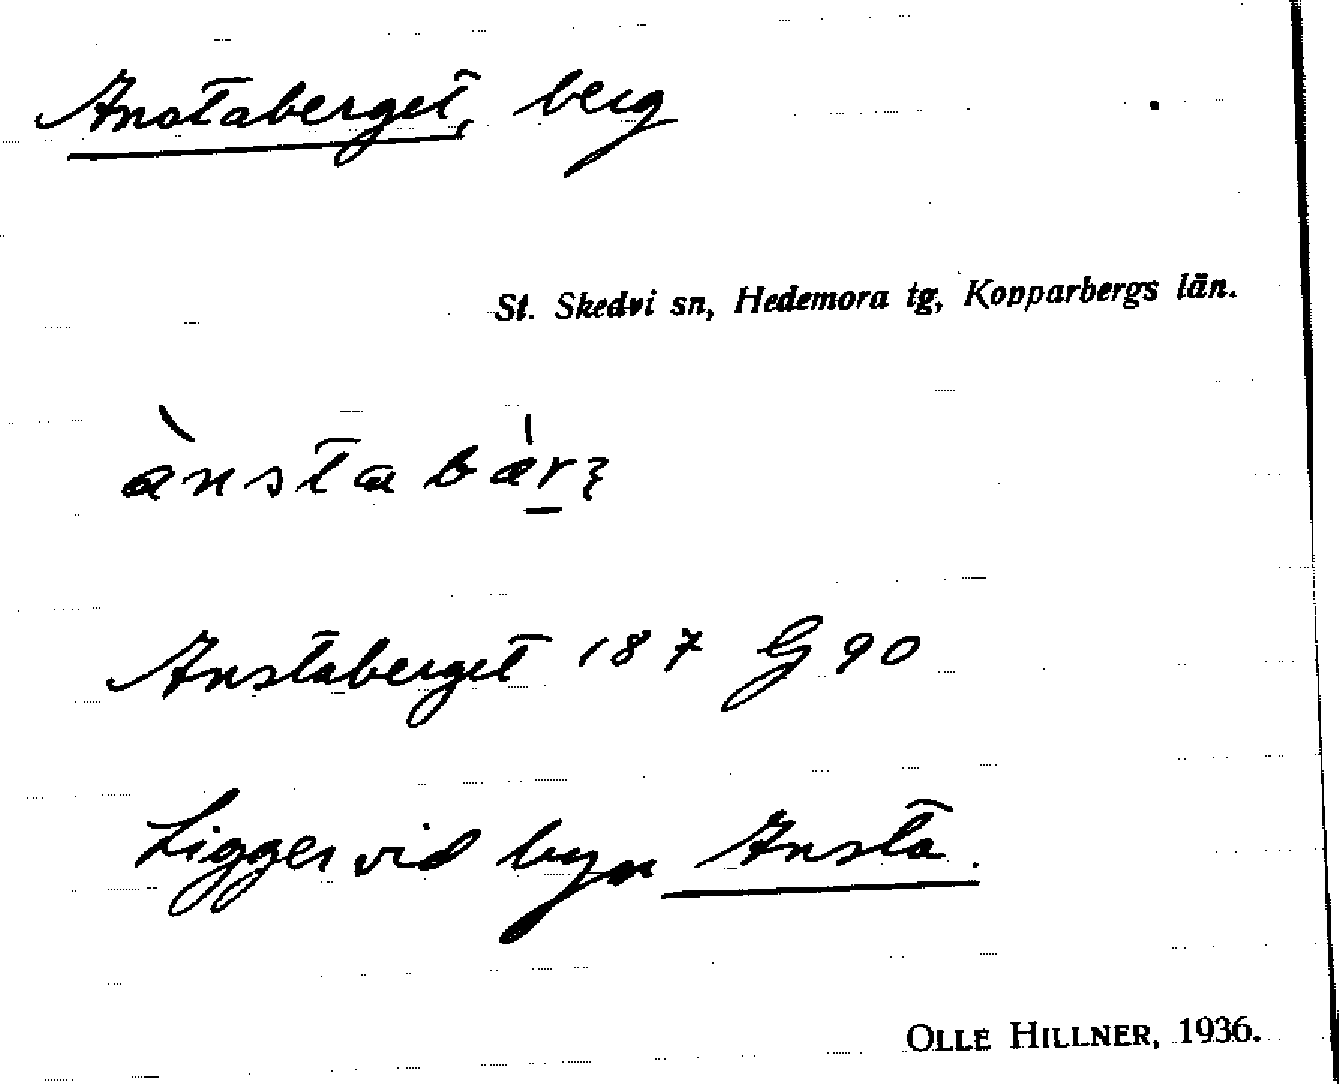 Anstaberget, berg
St. Skedvi sn, Hedemora tg, Kopparbergs län.
Anstaberget 187 G 90
Ligger vid byn Ansta.
OLLE HILLNER, 1936.